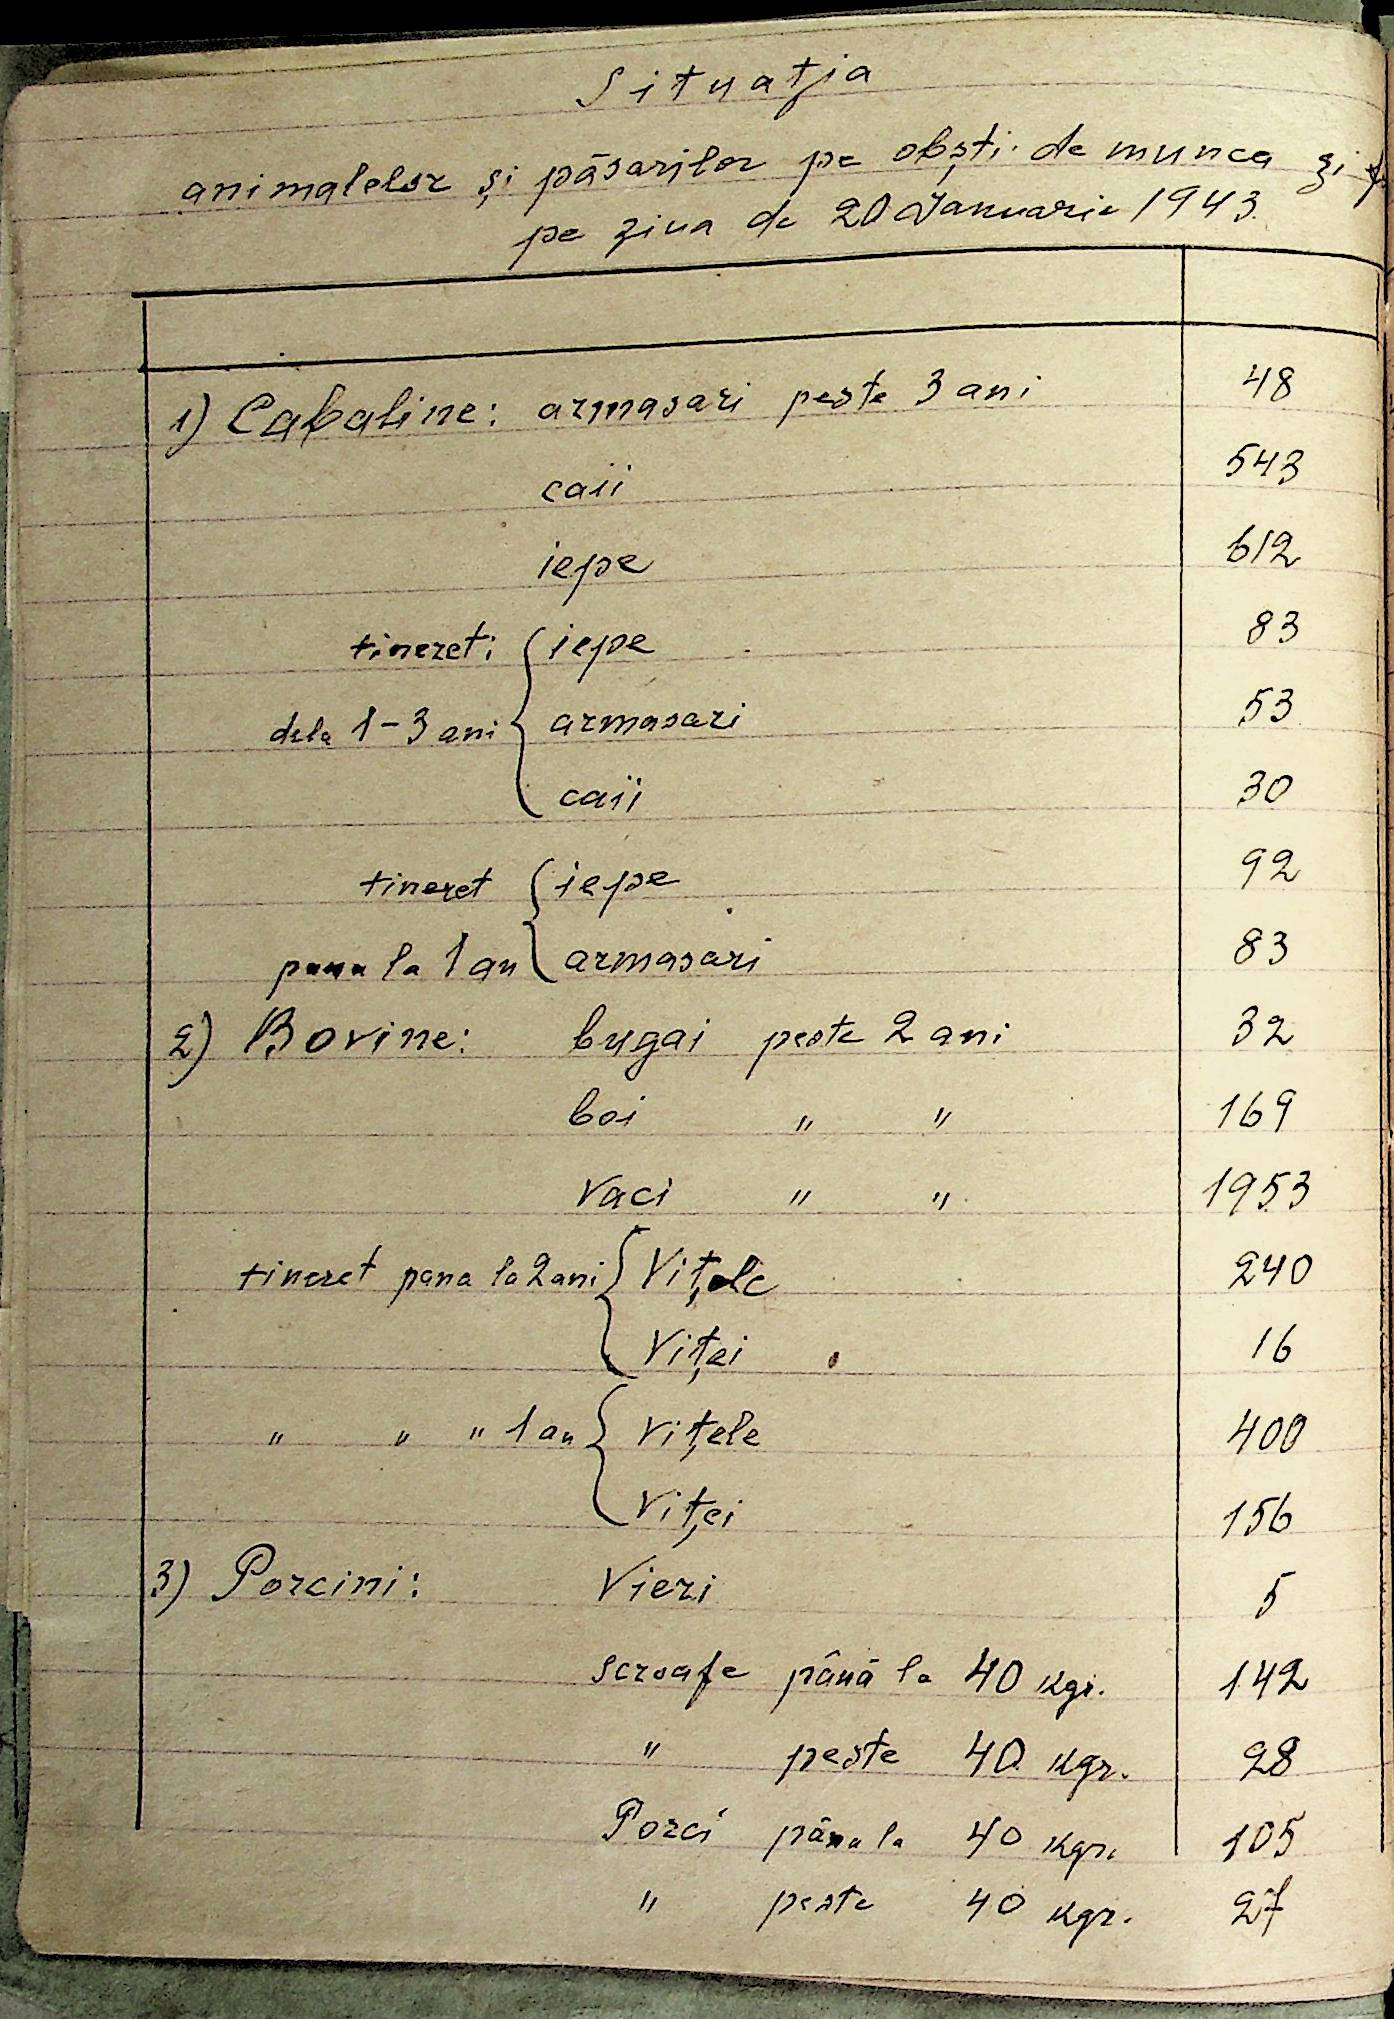 Situaţia
animalelor şi păsarilor pe obşti de munca şi
pe ziua de 20 Januarie 1943.
1) Cabaline: armasari peste 3 ani 48
caii 543
iepe 612
tineret: iepe 83
dela 1-3 ani armasari 53
caii 30
tineret iepe 92
pana la 1 an armasari 83
2) Bovine: bugai peste 2 ani 32
boi " " 169
vaci " " 1953
tineret pana la 2 ani Viţele 240
Viţei 16
" " " 1 an Viţele 400
Viţei 156
3) Porcini: Vieri 5
scroafe până la 40 kgr. 142
" peste 40 kgr. 28
Porci pâna la 40 kgr. 105
" peste 40 kgr. 27